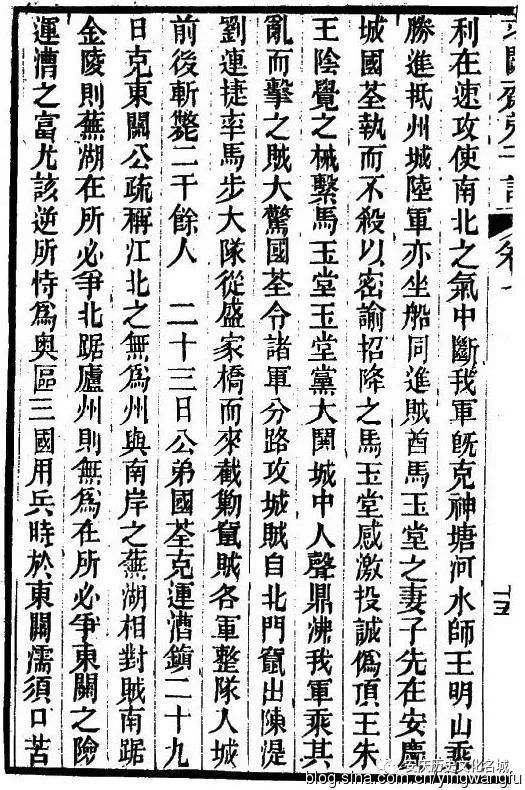 利在速攻使南北之氣中斷我軍旣克神塘河水師王明山乘
勝進抵州城陸軍亦坐船同進賊酋馬玉堂之妻子先在安慶
城國荃執而不殺以密諭招降之馬玉堂感激投誠僞頂王朱
王陰覺之械繫馬玉堂玉堂黨大鬨城中人聲鼎沸我軍乘其
亂而擊之賊大驚國荃令諸軍分路攻城賊自北門竄出陳湜
劉連捷率馬步大隊從盛家橋而來截勦竄賊各軍整隊入城
前後斬斃二千餘人　二十三日公弟國荃克運漕鎭二十九
日克東關公疏稱江北之無爲州與南岸之蕪湖相對賊南踞
金陵則蕪湖在所必爭北踞廬州則無爲在所必爭東關之險
運漕之富尤該逆所恃爲奧區三國用兵時於東關濡須口苦
安庆历史文化名城
blog.sina.com.cn/yingwangfu